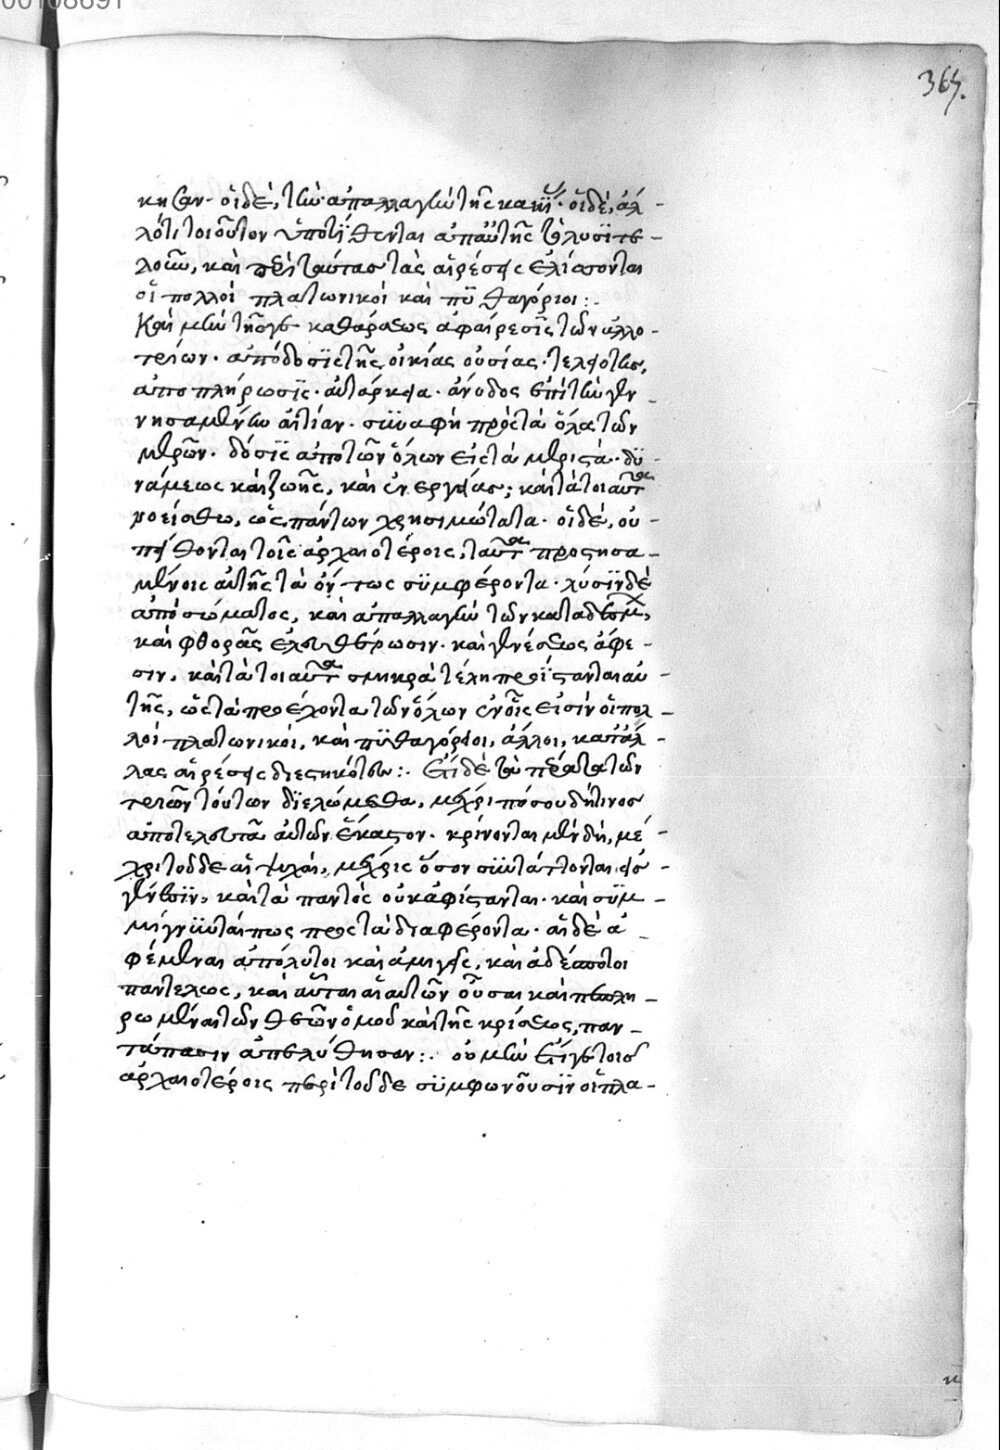 00108691
367.
κησιν· οἱ δὲ, τὴν ἀπαλλαγὴν τῆς κακῆς· οἱ δὲ, ἀλ-
λότι τοιοῦτον ὑποτίθενται ἀπ' αὐτῆς τὸ λυσιτε-
λοῦν, καὶ περὶ ταύτας τὰς αἱρέσεις ἑλίσσονται
οἱ πολλοὶ πλατωνικοὶ καὶ πυθαγόριοι :.
Καὶ μὴν τῆς γε καθάρσεως ἀφαίρεσις τῶν ἀλλο-
τρίων· ἀπόδοσις τῆς οἰκίας οὐσίας· τελειότης,
ἀποπλήρωσις· αὐτάρκεια· ἄνοδος ἐπὶ τὴν γεν-
νησαμένην αἰτίαν· συναφὴ πρὸς τὰ ὅλα τῶν
μερῶν· δόσις ἀπὸ τῶν ὅλων εἰς τὰ μεριστὰ· δυ-
νάμεως καὶ ζωῆς, καὶ ἐνεργείας; καὶ τὰ τοιαῦτα
νοείσθω, ὡς πάντων χρησιμώτατα· οἱ δὲ, οὐ
πείθονται τοῖς ἀρχαιοτέροις, ταῦτα προστησα-
μένοις αὐτῆς τὰ ὄντως συμφέροντα· λύσιν δὲ
ἀπὸ σώματος, καὶ ἀπαλλαγὴν τῶν καταδεσμῶν,
καὶ φθορᾶς ἐλευθέρωσιν· καὶ γενέσεως ἄφε-
σιν, καὶ τὰ τοιαῦτα σμικρὰ τέλη προΐστανται αὐ-
τῆς, ὡς τὰ προέχοντα τῶν ὅλων ἐν οἷς εἰσὶν οἱ πολ-
λοὶ πλατωνικοὶ, καὶ πυθαγόρειοι, ἄλλοι, κατ' ἄλ-
λας αἱρέσεις διεστηκότες :. Εἰ δὲ τὰ πέρατα τῶν
τριῶν τούτων διελώμεθα, μέχρι πόσου δήτινος
ἀποτελευτᾶ αὐτῶν ἕκαστον· κρίνονται μὲν δὴ, μέ-
χρι τοῦδε αἱ ψυχαὶ, μέχρις ὅσον συντάττονται εἰς
γένεσιν, καὶ τὰ παντὸς οὐκ ἀφίστανται· καὶ συμ-
μίγνυνταί πως πρὸς τὰ διαφέροντα· αἱ δὲ ἀ-
φέμεναι ἀπόλυτοι καὶ ἀμιγεῖς, καὶ ἀδέσποτοι
παντελῶς, καὶ αὗται αἱ αὐτῶν οὖσαι καὶ πεπλη-
ρωμέναι τῶν θεῶν ὁμοῦ καὶ τῆς κρίσεως, παν-
τάπασιν ἀπελύθησαν :. οὐ μὴν ἔτι γε τοῖς
ἀρχαιοτέροις περὶ τοῦδε συμφωνοῦσιν οἱ πλα-